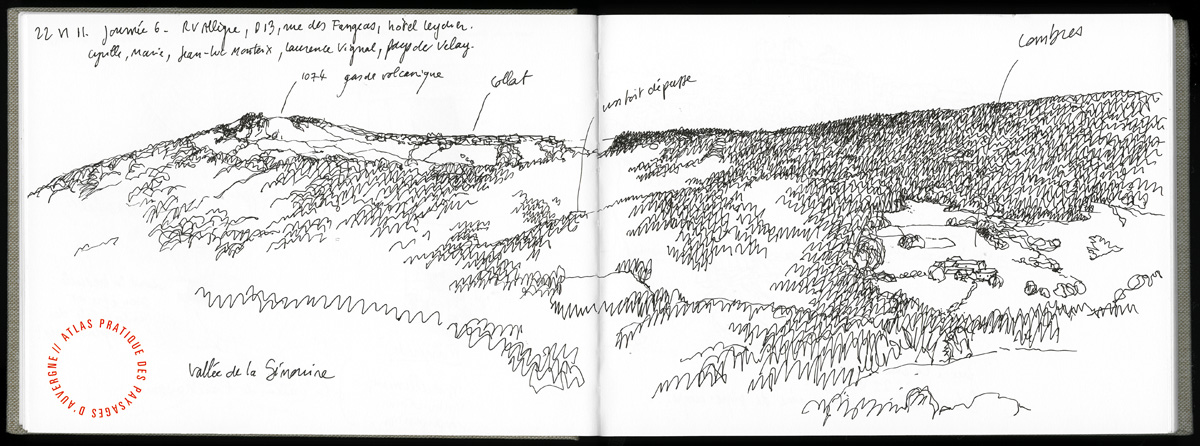 22 VI 11. Journée 6 - RV Allègre, D13, rue des Fangeas, hôtel Leydier.
Cyrille, Marie, Jean-Luc Monteix, Laurence Vignal, pays de Velay.
1074 gas de volcanique
Collat
un toit dépasse
Combres
Vallée de la Sénouire
ATLAS PRATIQUE DES PAYSAGES D'AUVERGNE //